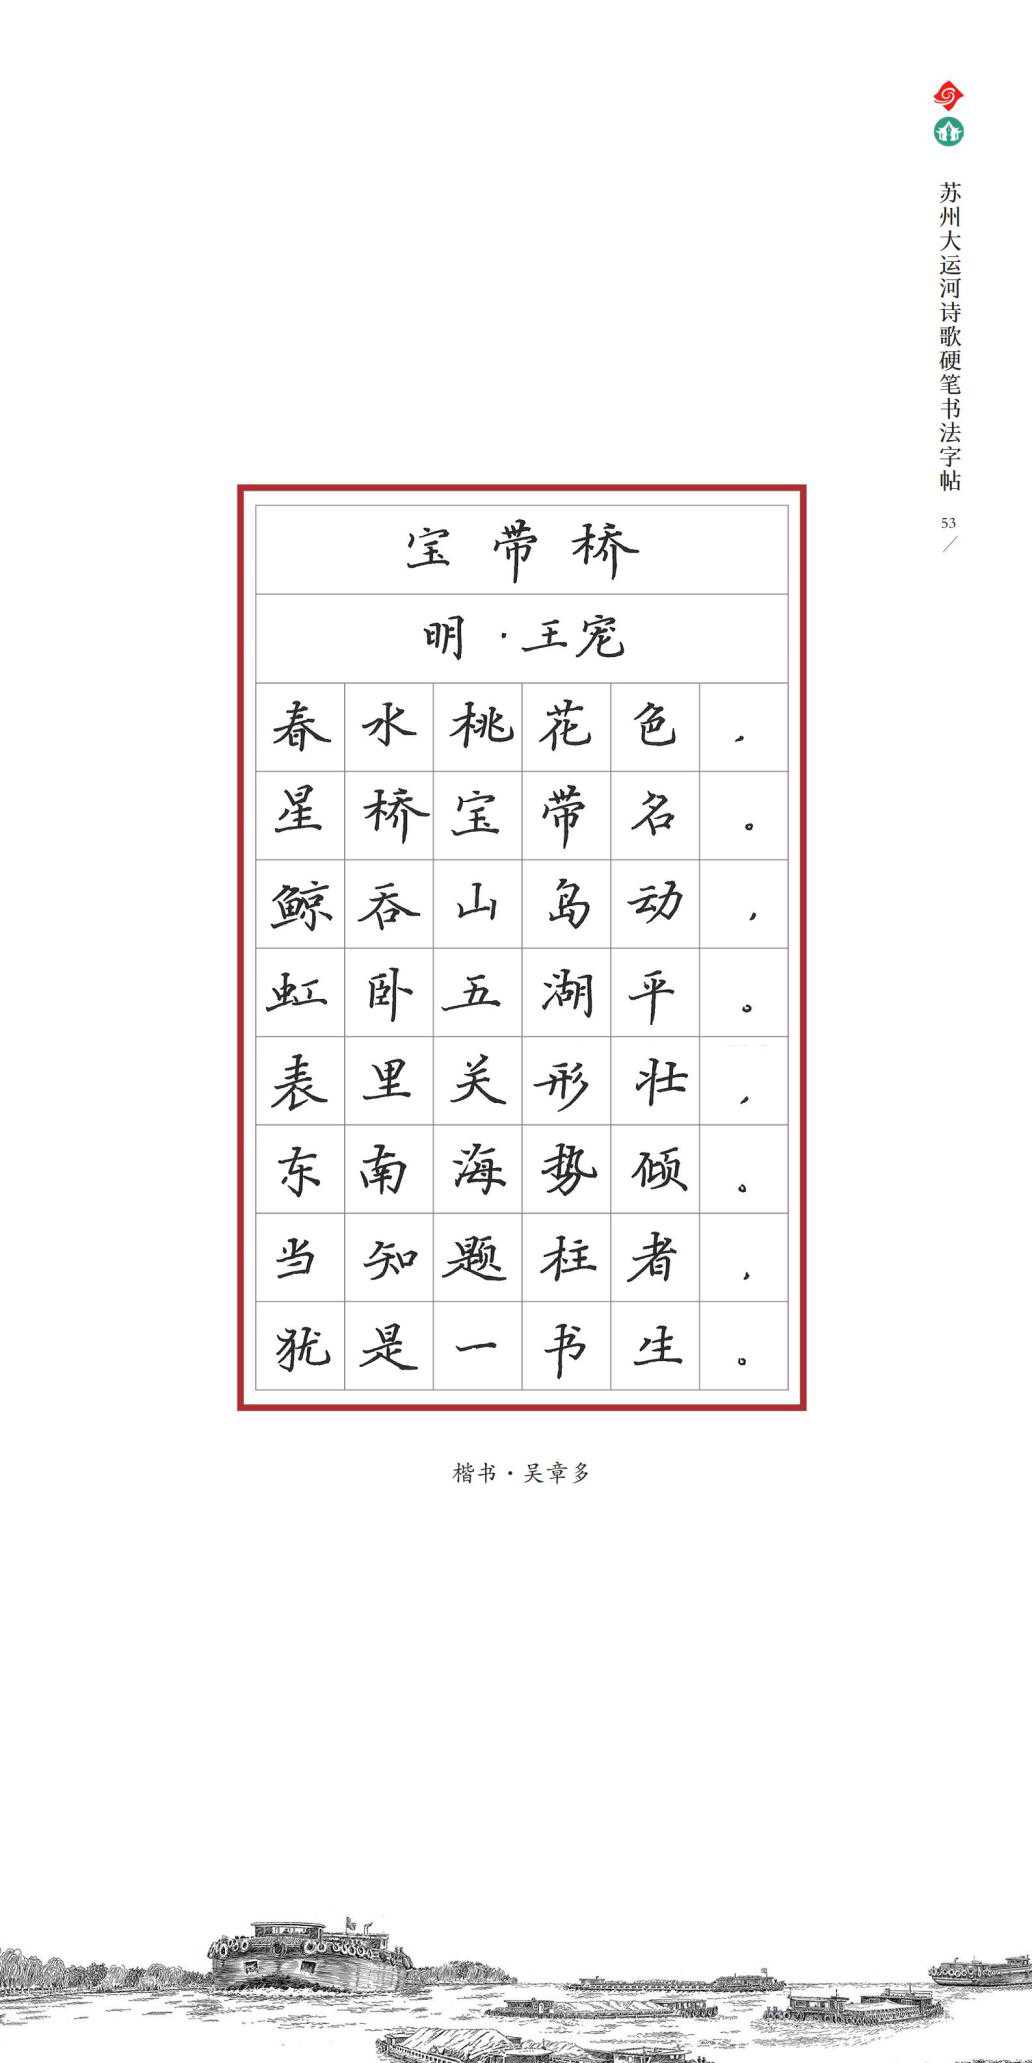 苏州大运河诗歌硬笔书法字帖
53
宝带桥
明·王宠
春水桃花色，
星桥宝带名。
鲸吞山岛动，
虹卧五湖平。
表里关形壮，
东南海势倾。
当知题柱者，
犹是一书生。
楷书·吴章多